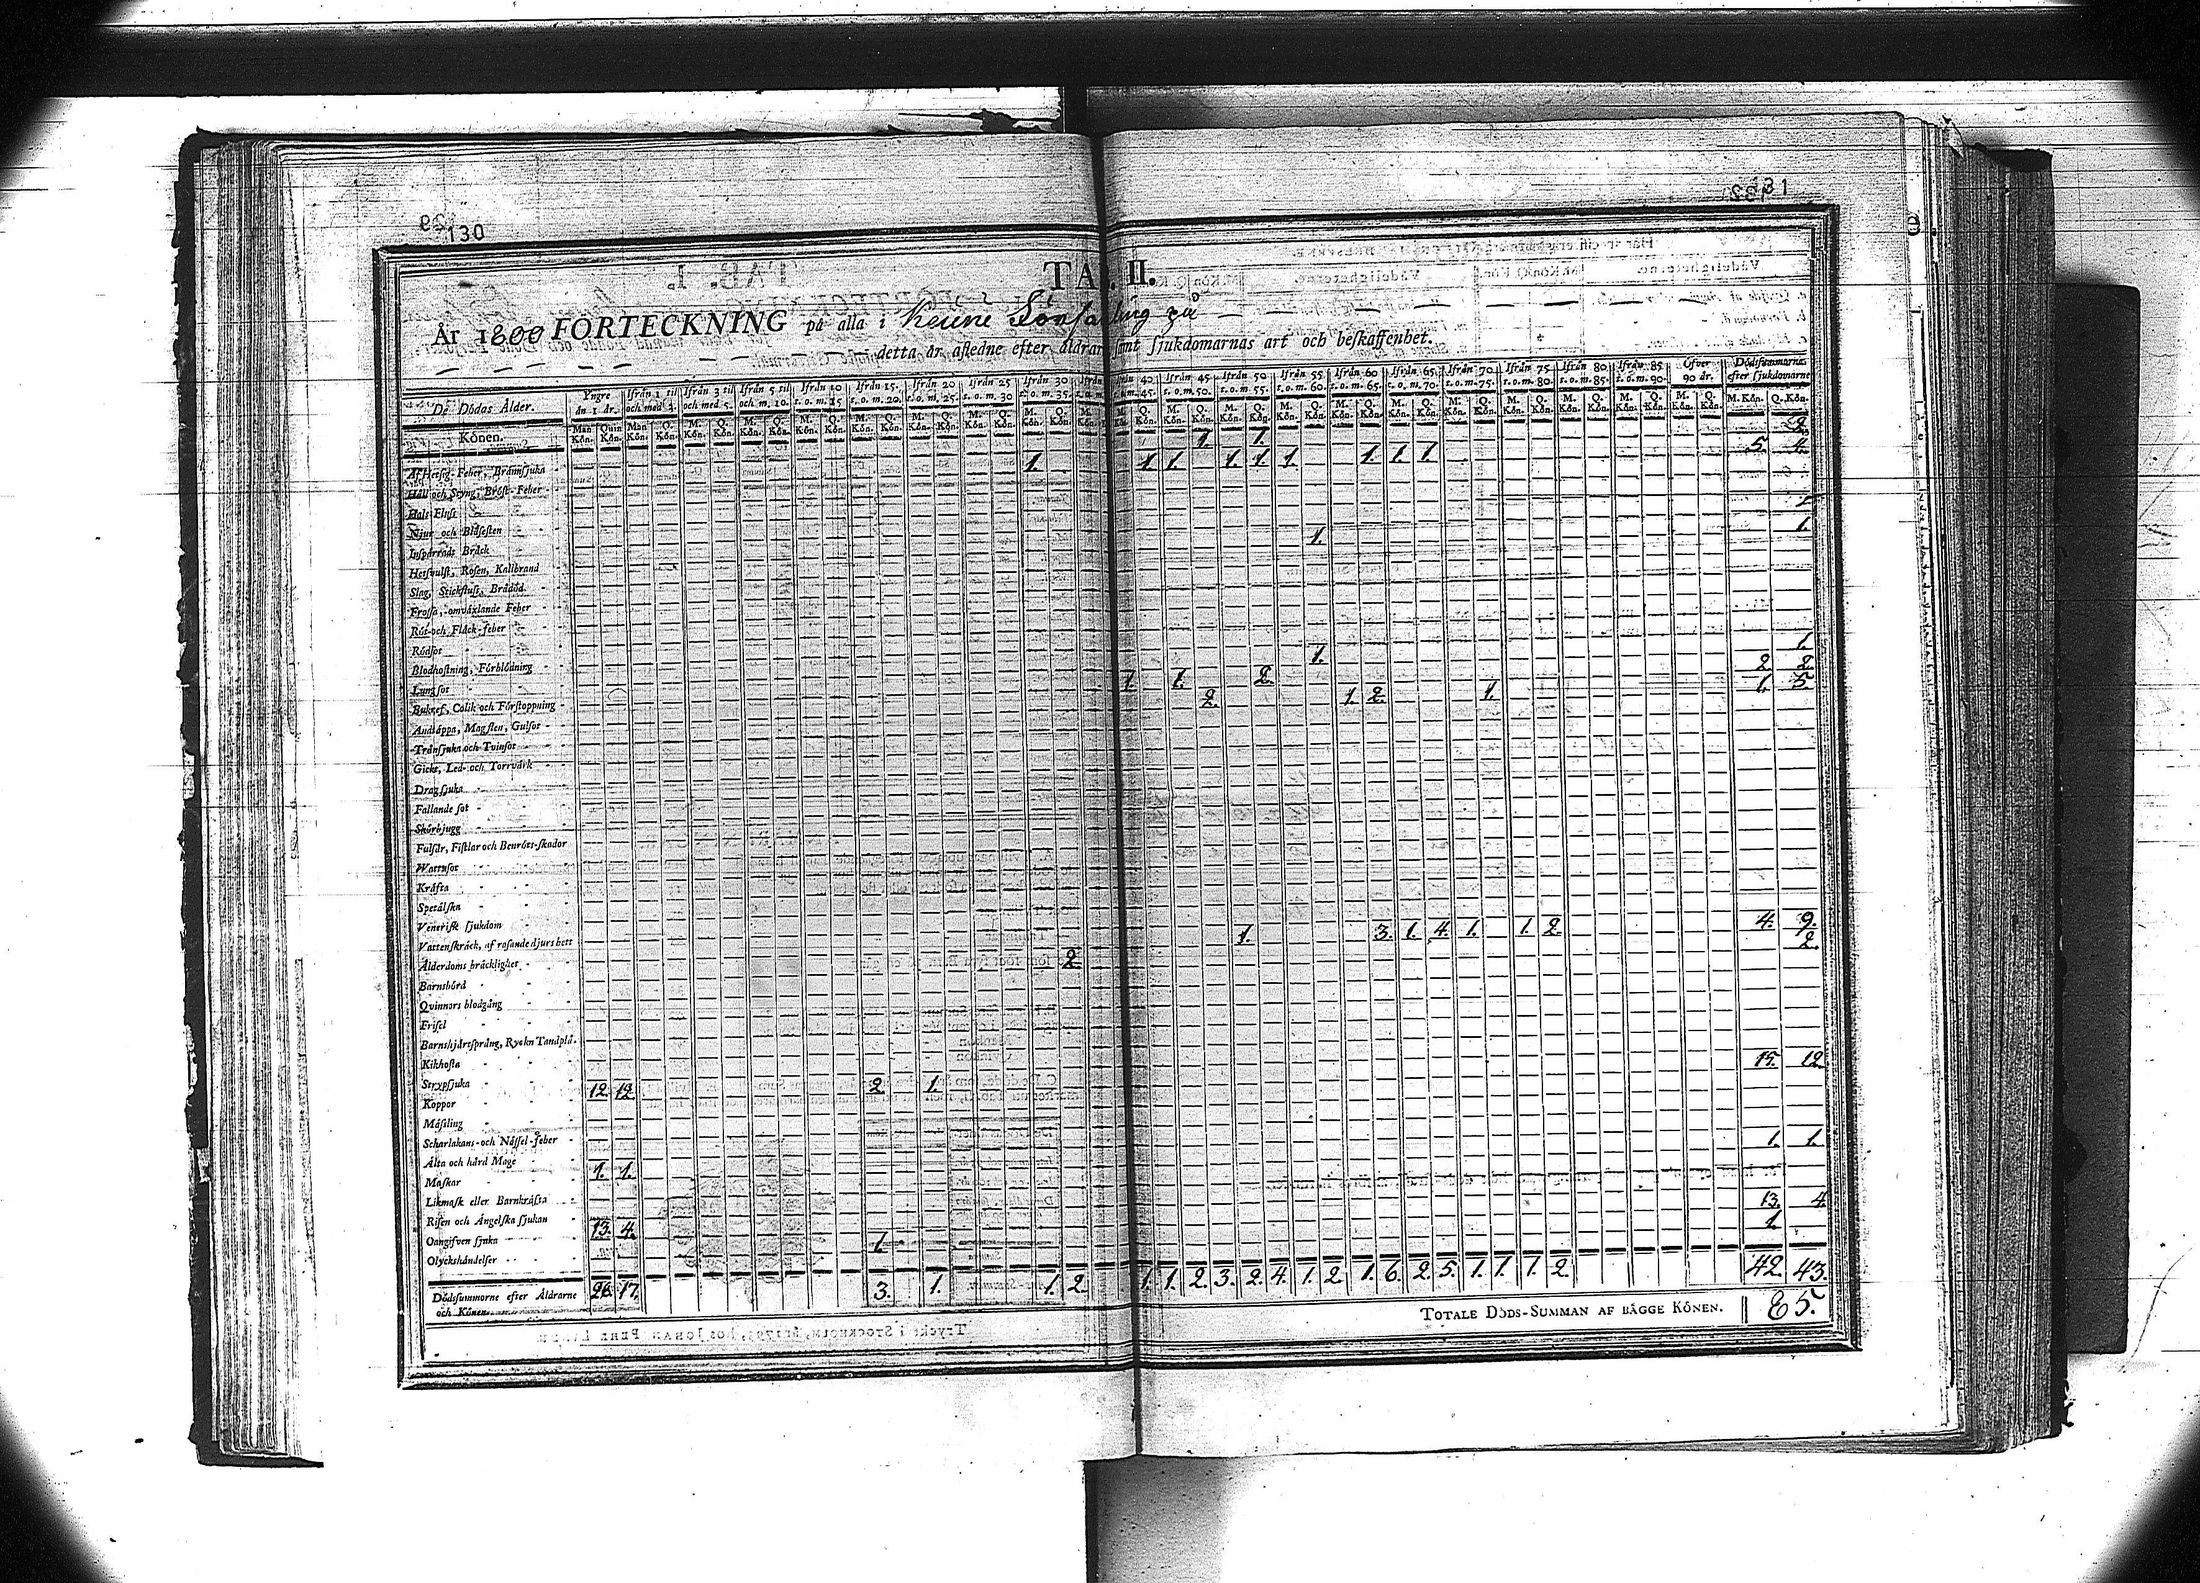 130
131
TAB. II.
År 1800 FÖRTECKNING på alla i
detta år afledne efter åldrar samt sjukdomarnas art och beskaffenhet.
De Dödas Ålder. Yngre än 1 år. Ifrån 1 til och med 3. Ifrån 3 til och med 5. Ifrån 5 til och m. 10. Ifrån 10 t. o. m. 15 Ifrån 15. t. o. m. 20. Ifrån 20 t. o. m. 25. Ifrån 25 t. o. m. 30 Ifrån 30 t. o. m. 35. Ifrån 40. t. o. m. 45. Ifrån 45 t. o. m. 50. Ifrån 50 t. o. m. 55. Ifrån 55 t. o. m. 60. Ifrån 60 t. o. m. 65. Ifrån 65. t. o. m. 70. Ifrån 70 t. o. m. 75. Ifrån 75 t. o. m. 80. Ifrån 80 t. o. m. 85. Ifrån 85 t. o. m. 90. Öfver 90 år. Dödssummorne efter sjukdomarne
Könen. Man Kön. Quin Kön. Man Kön. Q. Kön. M. Kön. Q. Kön.
Af Hetsig-Feber, Brännsjuka 1. 1. 2.
Håll och Styng, Bröst-Feber 1. 1 1. 1. 1. 1. 1. 1. 1 5. 4.
Hals-Flus
Njur och Blåsesten
Inspärradt Bråck
Hetsvulst, Rosen, Kallbrand 1. 1.
Slag, Stickflus, Bråddöd
Frossa, omväxlande Feber
Röt-och Fläck-feber
Rödsot
Blodhostning, Förblödning 1. 1.
Lungsot 1. 1. 2. 2. 2.
Bukref, Colik och Förstoppning 2. 1. 2. 1. 1. 5.
Andtäppa, Magsten, Gulsot
Trånsjuka och Tvinsot
Gickt, Led- och Torrvärk
Dragsjuka
Fallande sot
Skörbjugg
Fulsår, Fistlar och Benröts-skador
Wattusot
Kräfta
Spetälska
Venerisk sjukdom
Vattenskräck, af rasande djurs bett
Ålderdoms bräcklighet 1. 3. 1. 4. 1. 1. 2. 4. 9.
Barnsbörd 2. 2.
Qvinnors blodgång
Frisel
Barnshjärtsprång, Ryck n Tandplå.
Kikhosta
Strypsjuka
Koppor 12. 12 2 1. 15. 12.
Mässling
Scharlakans- och Nässel-feber
Älta och hård Mage
Maskar 1. 1. 1. 1.
Likmask eller Barnkräfta
Risen och Ängelska sjukan
Oangifven sjuka 13. 4. 13. 4.
Olyckshändelser 1. 1.
Dödssummorne efter Åldrarne och Könen. 26. 17. 3. 1. 1. 2. 1. 1. 2. 3. 2. 4. 1. 2. 1. 6. 2. 5. 1. 1. 1. 2. 42. 43.
TOTALE DÖDS-SUMMAN AF BÅGGE KÖNEN. 85.